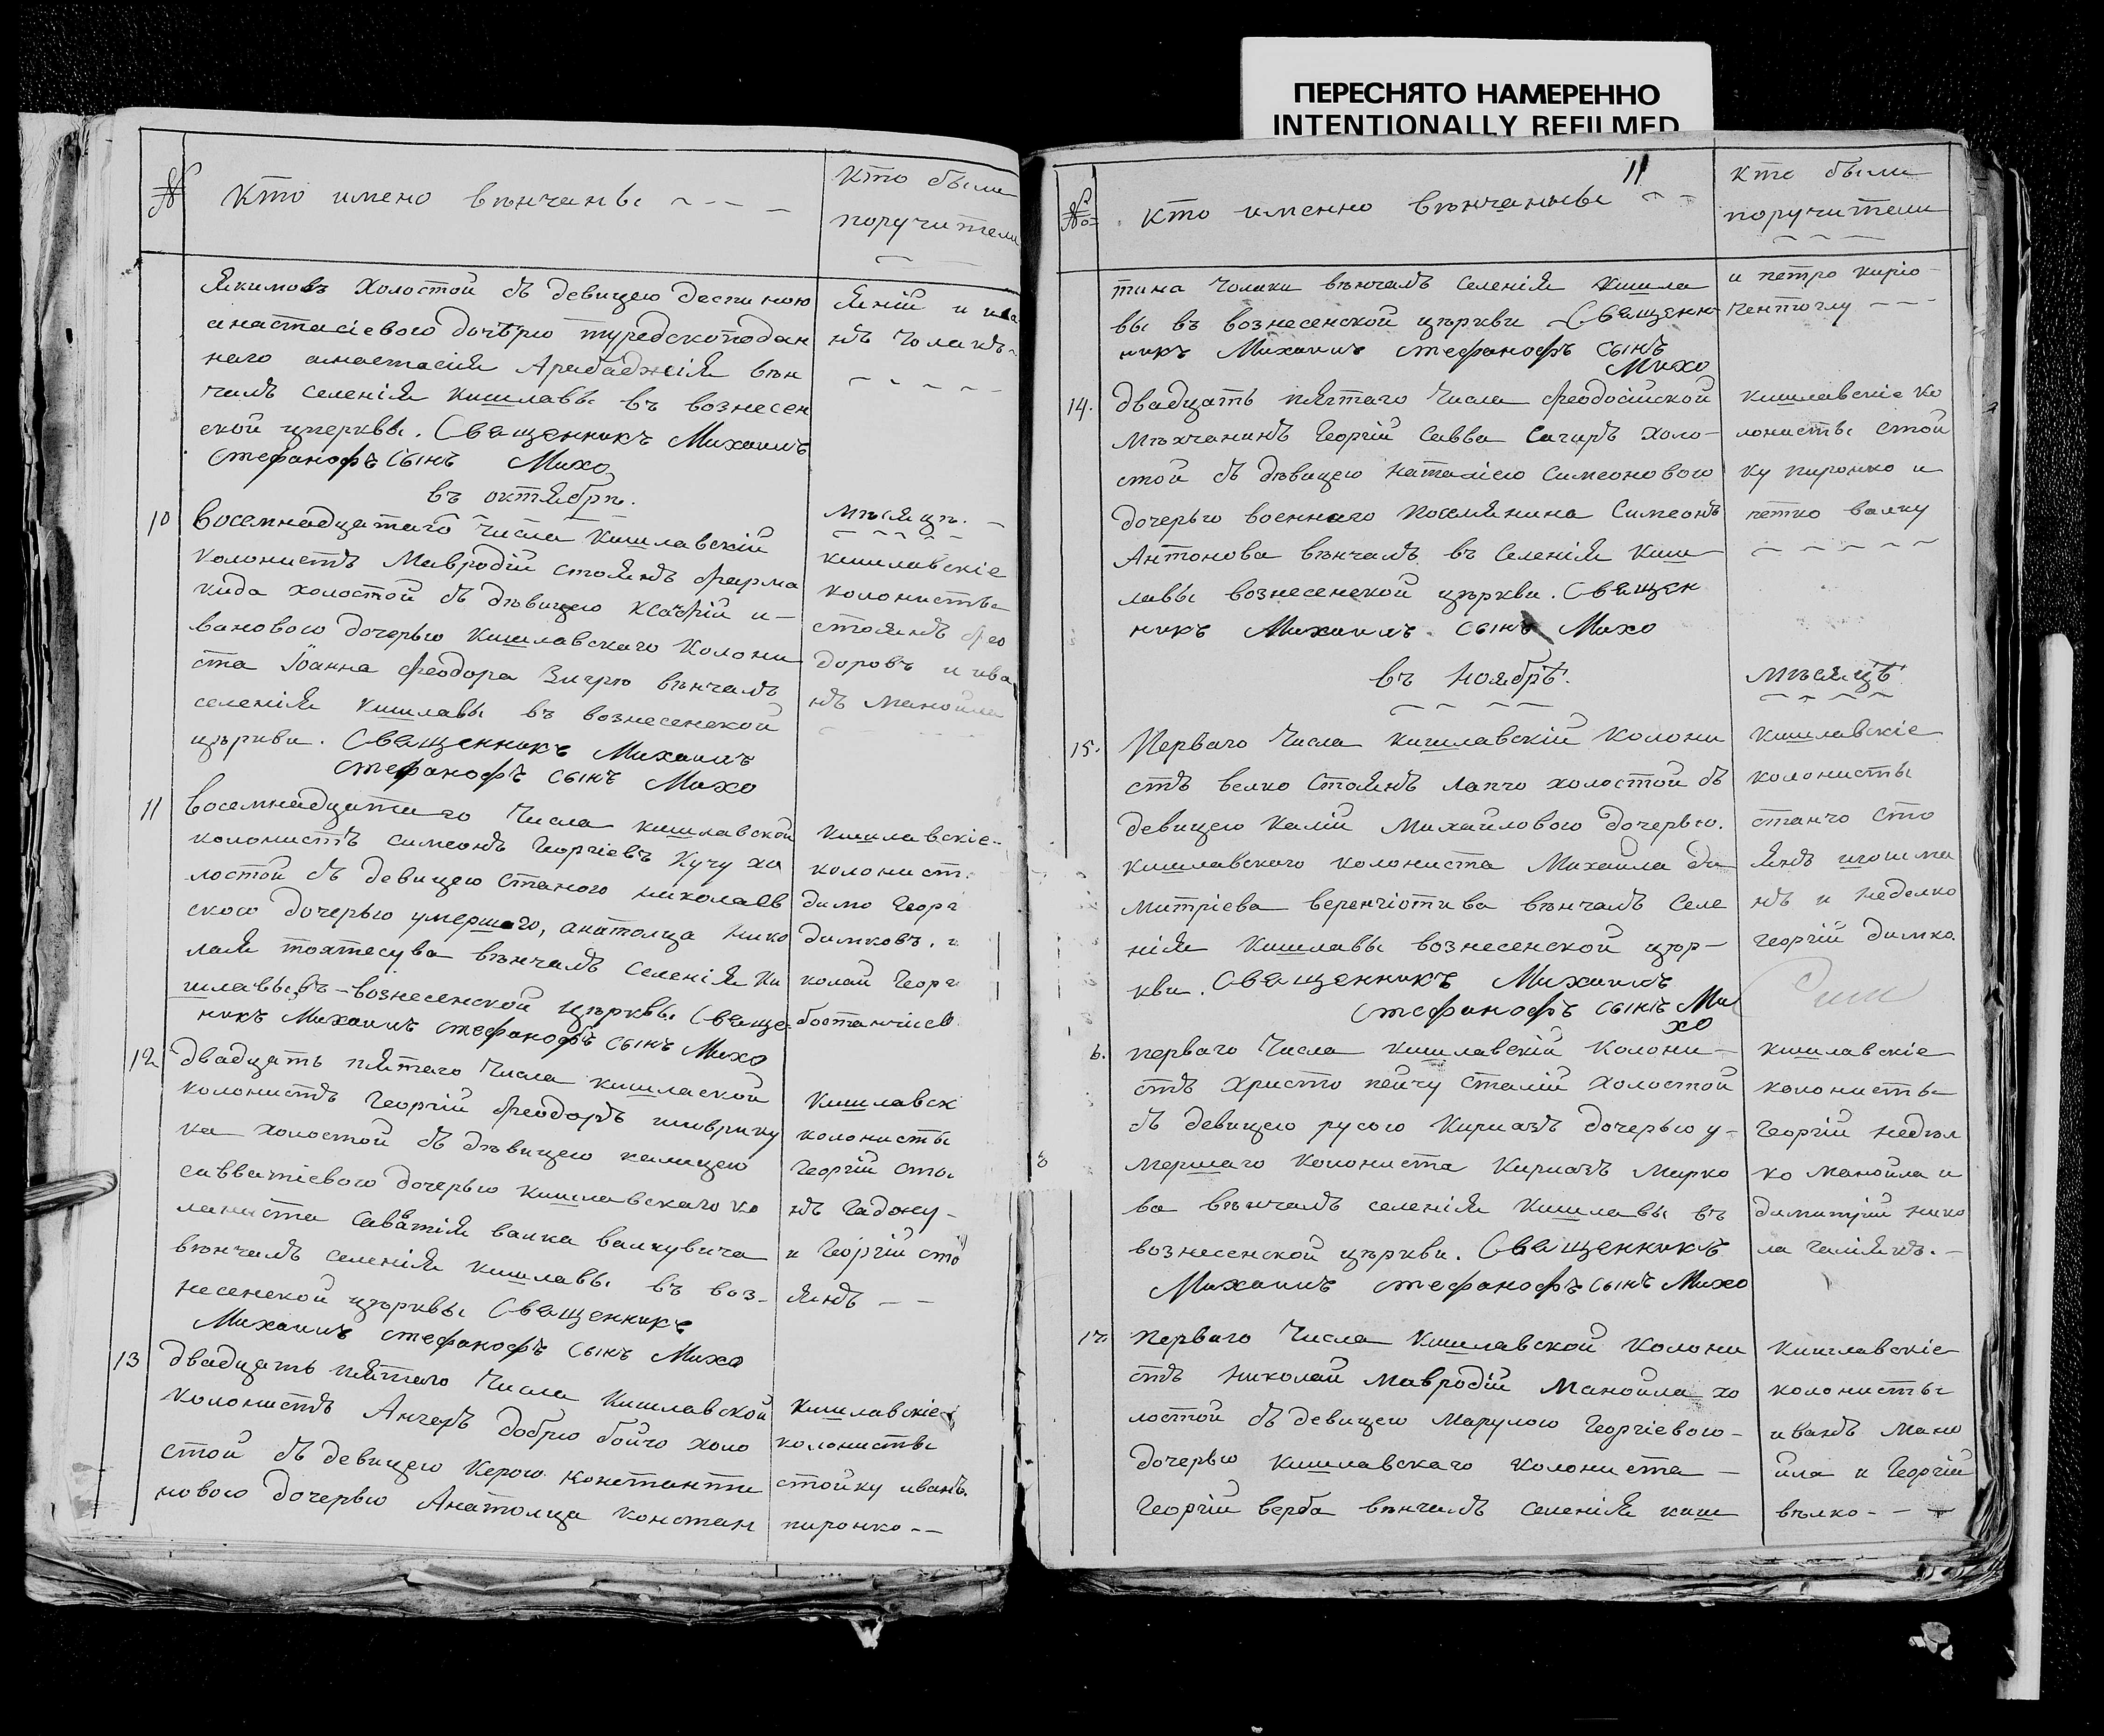 ПЕРЕСНЯТО НАМЕРЕННО
INTENTIONALLY REFILMED
№
Кто имено вѣнчаны
Кто были
поручители
Якимовъ Холостой съ девицею деспиною
анастасіевою дочерю турецкоподан
наго анастасія Арабаджія вѣн
чалъ селенія Кишлавы въ вознесен
ской церквы. Священникъ Михаилъ
стефанофъ сынъ Михо
Яній и ива
нъ Чолакъ
въ октябрѣ.
мѣсяцѣ.
10
Восемнадцатаго Числа Кишлавскій
колонистъ Мавродій стоянъ фарма
кида холостой съ дѣвицею Ксафій и-
вановою дочерью Кишлавскаго Колони
ста Іоанна феодора Зигрю вѣнчалъ
селенія Кишлавы въ вознесенской
цѣркви. Священникъ Михаилъ
стефанофъ сынъ Михо
кишлавскіе
колонисты
стоянъ фео
доровъ и ива
нъ манойла
11
Восемнадцатаго Числа кишлавской
колонистъ симеонъ Георгіевъ Кучу хо
лостой съ девицею станою николаев
скою дочерью умершаго, анатолца нико
лая тохтесува вѣнчалъ селенія Ки
шлавы въ-вознесенской цѣрквы Свяще
никъ Михаилъ стефанофъ сынъ Михо
Кишлавскіе
колонист.
димо Георг
димковъ. и
колай Георг
бостанчіев
12
двадцать пятаго Числа кишлаской
колонистъ Георгій феодоръ шиврику
ка холостой съ дѣвицею калицею
савватіевою дочерью кишлавскаго ко
лониста Савватія валка валкувича
вѣнчалъ селенія Кишлавы въ воз-
несенской цѣрквы Священникъ
Михаилъ стефанофъ сынъ Михо
Кишлавск
колонисты
Георгій сто
нъ Гадону-
и Георгій сто
янъ
13
двадцать пятаго Числа Кишлавской
колонистъ Ангеръ добрю бойчо холо
стой съ девицею Керою константи
новою дочерью Анатолца констан
Кишлавскіе
колонисты
стойку иванъ.
пиронко
11
№
Кто именно вѣнчаны
Кто были
поручители
тина Чолаки вѣнчалъ селенія Кишла
вы въ вознесенской цѣркви Священ
никъ Михаилъ стефанофъ сынъ
Михо
и петро киріо
14.
двадцать пятаго Числа феодосійской
Мѣхчанинъ Георгій Савва Сагиръ холо-
стой съ дѣвицею наталіею Симеоновою
дочерью военнаго поселянина Симеонъ
Антонова вѣнчалъ въ селенія Киш-
лавы вознесенской цѣркви. Священ
никъ Михаилъ. сынъ Михо
кишлавскіе ко
лонисты стой
ку пиронко и
петко валку
въ ноябрѣ.
мѣсяцѣ.
15.
Перваго Числа Кишлавскій Колони
стъ велко Стоянъ лапчо холостой съ
девицею Калій Михайловою дочерью.
кишлавскаго колониста Михайла ди
митріева веренгіотива вѣнчалъ селе
нія Кишлавы вознесенской цѣр-
кви. Священникъ Михаилъ
стефанофъ сынъ Ми
хо
Кишлавскіе
колонисты
станчо сто
янъ игошма
нъ и неделко
Георгій димко.
6.
перваго Числа кишлавскій Колони-
стъ Христо пейчу сталій холостой
съ девицею русою Киріазъ дочерью у-
мершаго колониста Киріазъ Мирко
ва вѣнчалъ селенія Кишлавы въ
вознесенской цѣркви. Священникъ
Михаилъ стефанофъ сынъ Михо
кишлавскіе
колонисты
Георгій недѣл
ко манойла и
димитрій нико
ла галіянъ.
17.
Перваго Числа Кишлавской Колони
стъ Николай Мавродій Манойла хо
лостой съ девицею Марулою Георгіевою-
дочерью кишлавскаго колониста -
Георгій верба вѣнчалъ селенія киш
Кишлавскіе
колонисты
иванъ мано
йла и Георгій
вѣлко